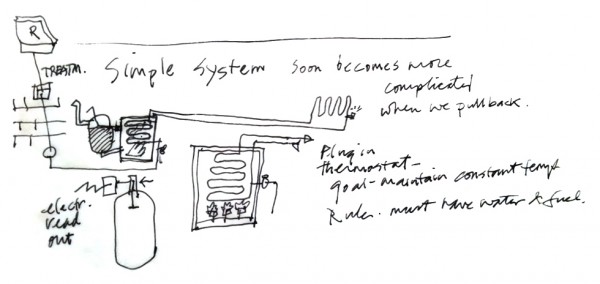 R
TREATM.
Simple System soon becomes more
complicated
when we pull back.
Plug in
thermostat -
goal - maintain constant temp
Rules. must have water & fuel.
electr.
read
out